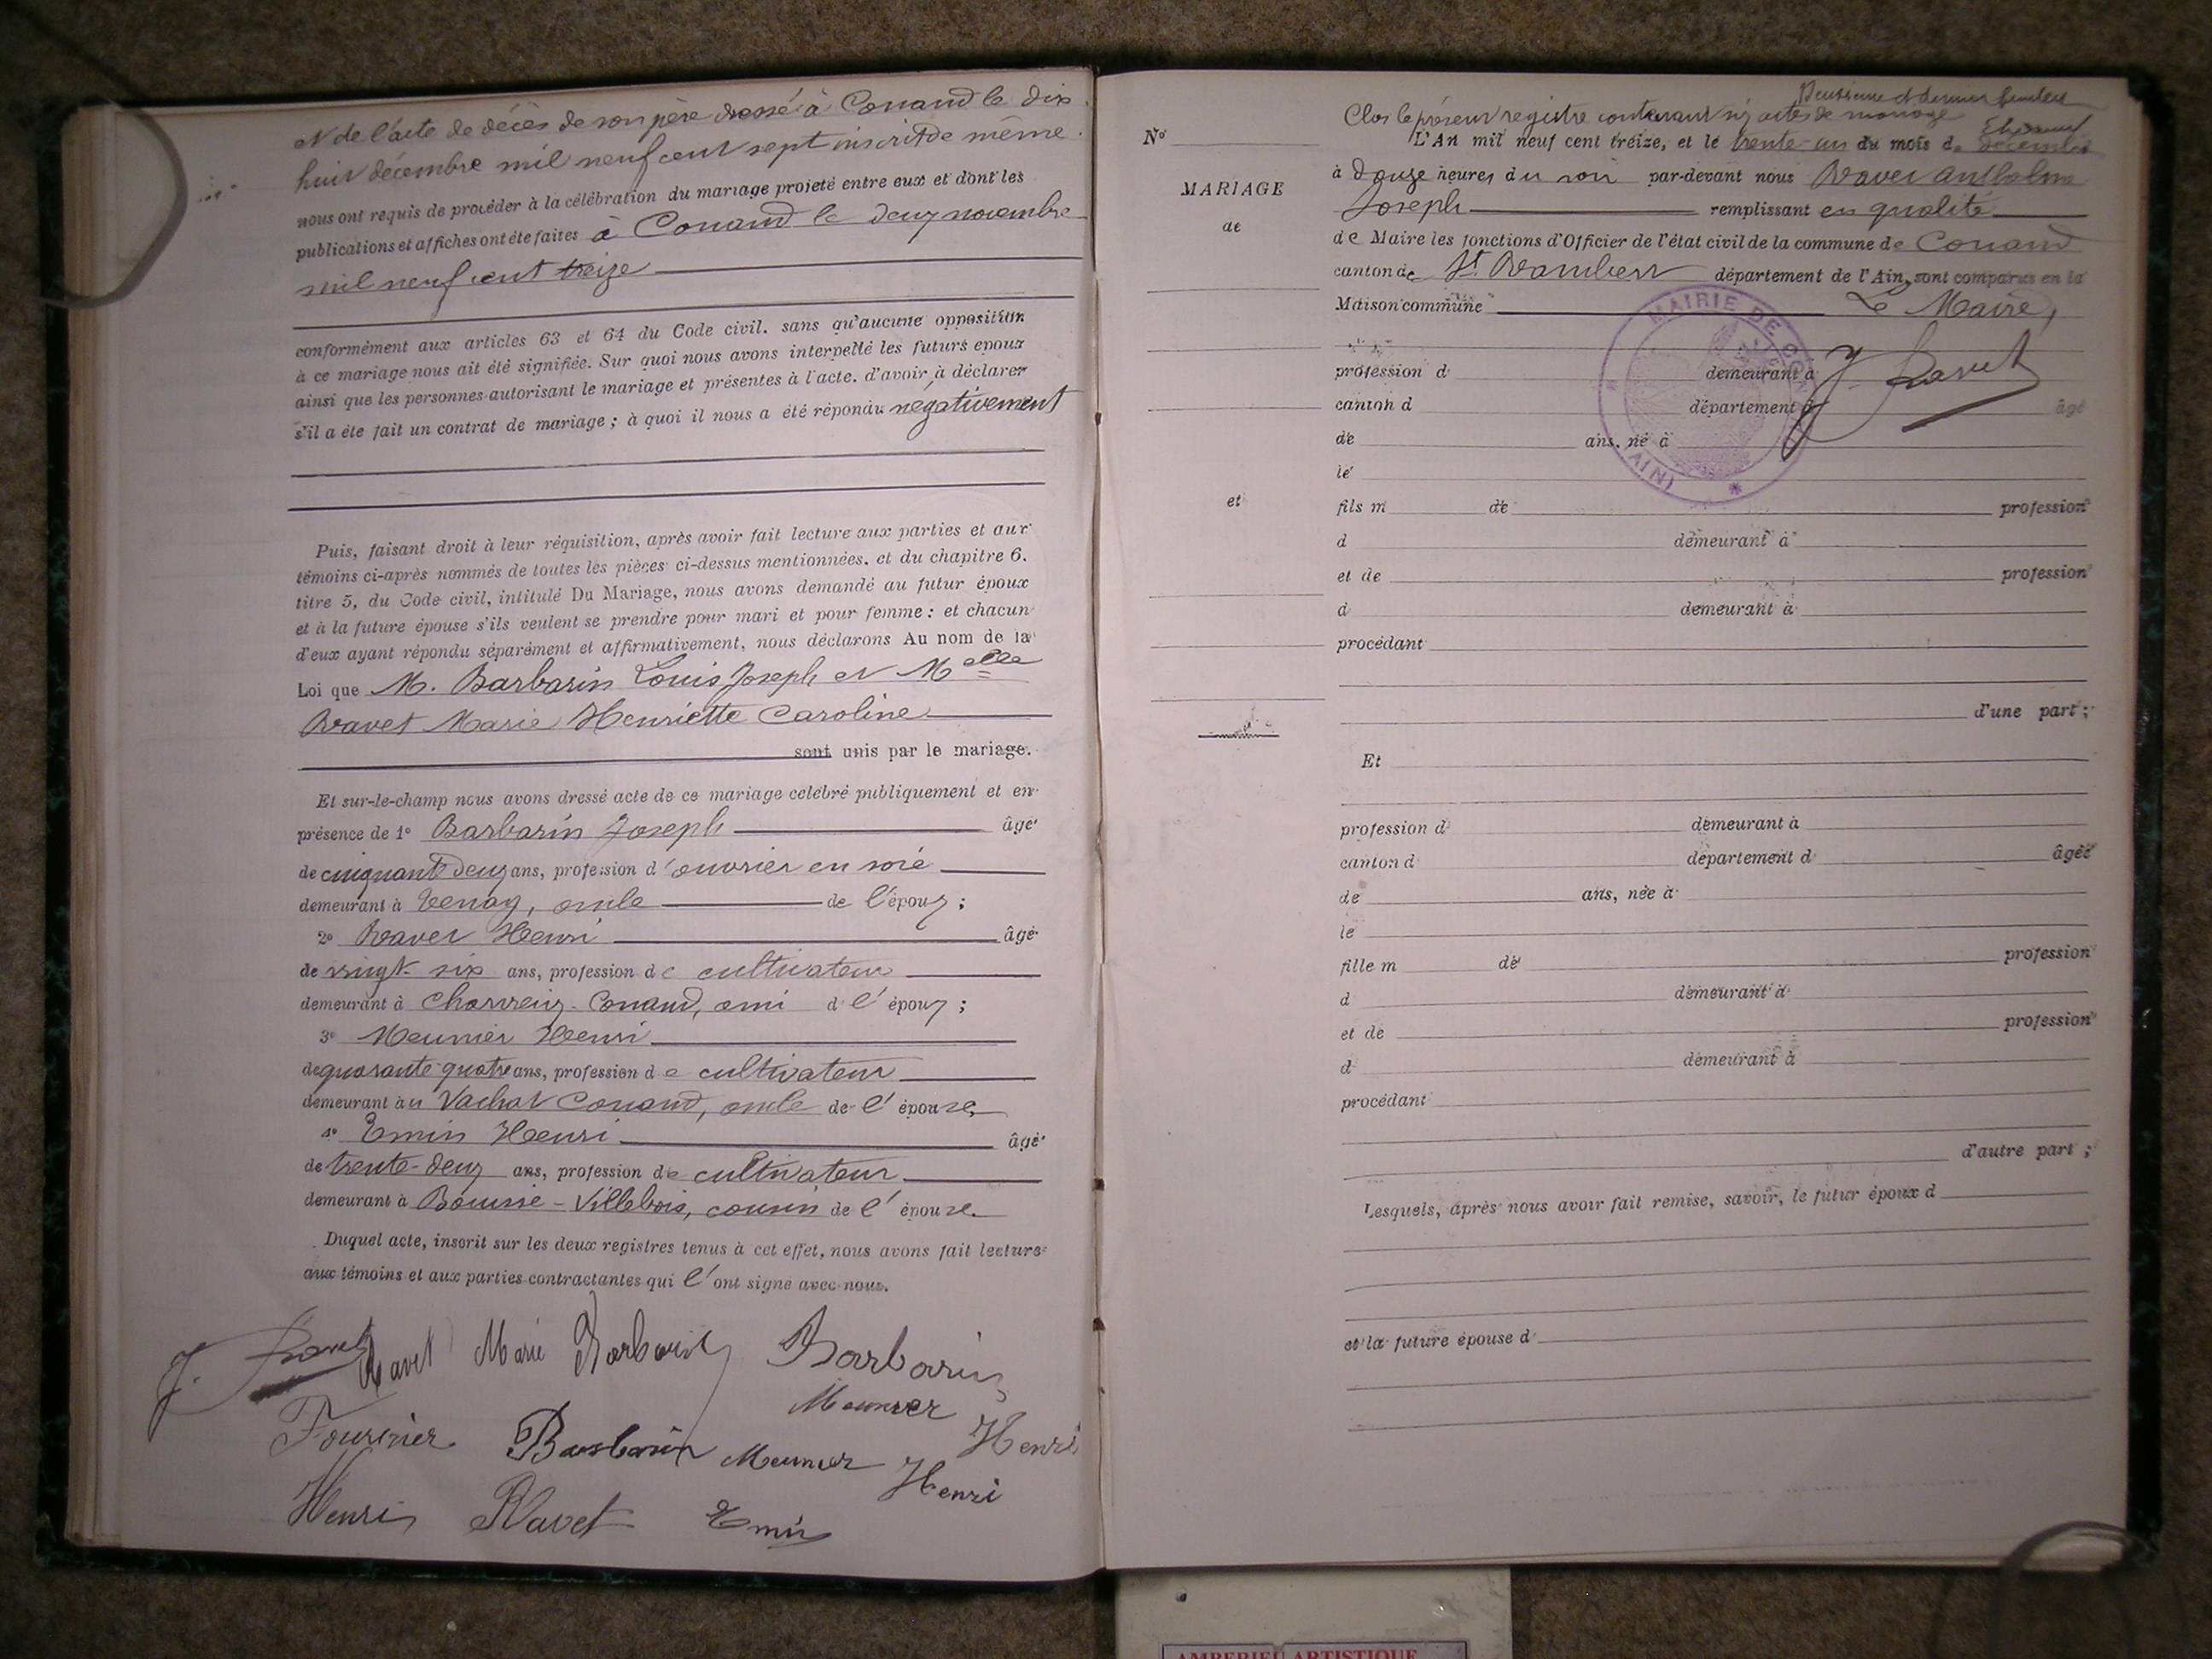 et de l'acte de décès de son père dressé à Conand le dix
huit décembre mil neuf cent sept inscrit de même.
nous ont requis de procéder à la célébration du mariage projeté entre eux et dont les
publications et affiches ont été faites à Conand le deux novembre
mil neuf cent treize
conformément aux articles 63 et 64 du Code civil. sans qu'aucune opposition
à ce mariage nous ait été signifiée. Sur quoi nous avons interpellé les futurs epoux
ainsi que les personnes autorisant le mariage et présentes à l'acte. d'avoir à déclarer
s'il a été fait un contrat de mariage ; à quoi il nous a été répondu négativement
Puis, faisant droit à leur réquisition, après avoir fait lecture aux parties et aux
témoins ci-après nommés de toutes les pièces ci-dessus mentionnées, et du chapitre 6.
titre 5, du Code civil, intitulé Du Mariage, nous avons demandé au futur époux
et à la future épouse s'ils veulent se prendre pour mari et pour femme : et chacun
d'eux ayant répondu séparément et affirmativement, nous déclarons Au nom de la
Loi que M. Barbarin Louis Joseph et Melle
Ravet Marie Henriette Caroline
sont unis par le mariage.
Et sur-le-champ nous avons dressé acte de ce mariage célébré publiquement et en
présence de 1° Barbarin Joseph âgé
de cinquante deux ans, profession d'ouvrier en soie
demeurant à Tenay, oncle de l'époux ;
2° Ravet Henri âgé
de vingt-six ans, profession de cultivateur
demeurant à Charveriz-Conand, ami d l'époux ;
3° Meunier Henri
de quarante quatre ans, profession de cultivateur
demeurant au Vachat Conand, oncle de l'épouse,
4° Emin Henri âgé
de trente-deux ans, profession de cultivateur
demeurant à Bouisse-Villebois, cousin de l'épouse.
Duquel acte, inscrit sur les deux registres tenus à cet effet, nous avons fait lecture
aux témoins et aux parties contractantes qui l'ont signé avec nous.
J. Ravet Ravet Marie Barbarin Barbarin
Meunier
Fournier Barbarin Meunier Henri
Henri
Henri Ravet Emin
Deuxième et dernier feuillet
Clos le présent registre contenant actes de mariage
N°
L'An mil neuf cent treize, et le trente-un du mois de décembre
MARIAGE
à douze heures du soir par-devant nous Ravet Anthelme
Joseph remplissant en qualité
de
de Maire les fonctions d'Officier de l'état civil de la commune de Conand
canton de St Rambert département de l'Ain, sont comparus en la
Maison commune Le Maire,
MAIRIE DE CONAND (AIN)
J. Ravet
profession d demeurant à
canton d département d âgé
de ans, né à
le
et
fils m de profession
d demeurant à
et de profession
d demeurant à
procédant
d'une part ;
Et
profession d demeurant à
canton d département d âgée
de ans, née à
le
fille m de profession
d demeurant à
et de profession
d demeurant à
procédant
d'autre part ;
Lesquels, après nous avoir fait remise, savoir, le futur époux d
et la future épouse d
AMBERIEU ARTISTIQUE